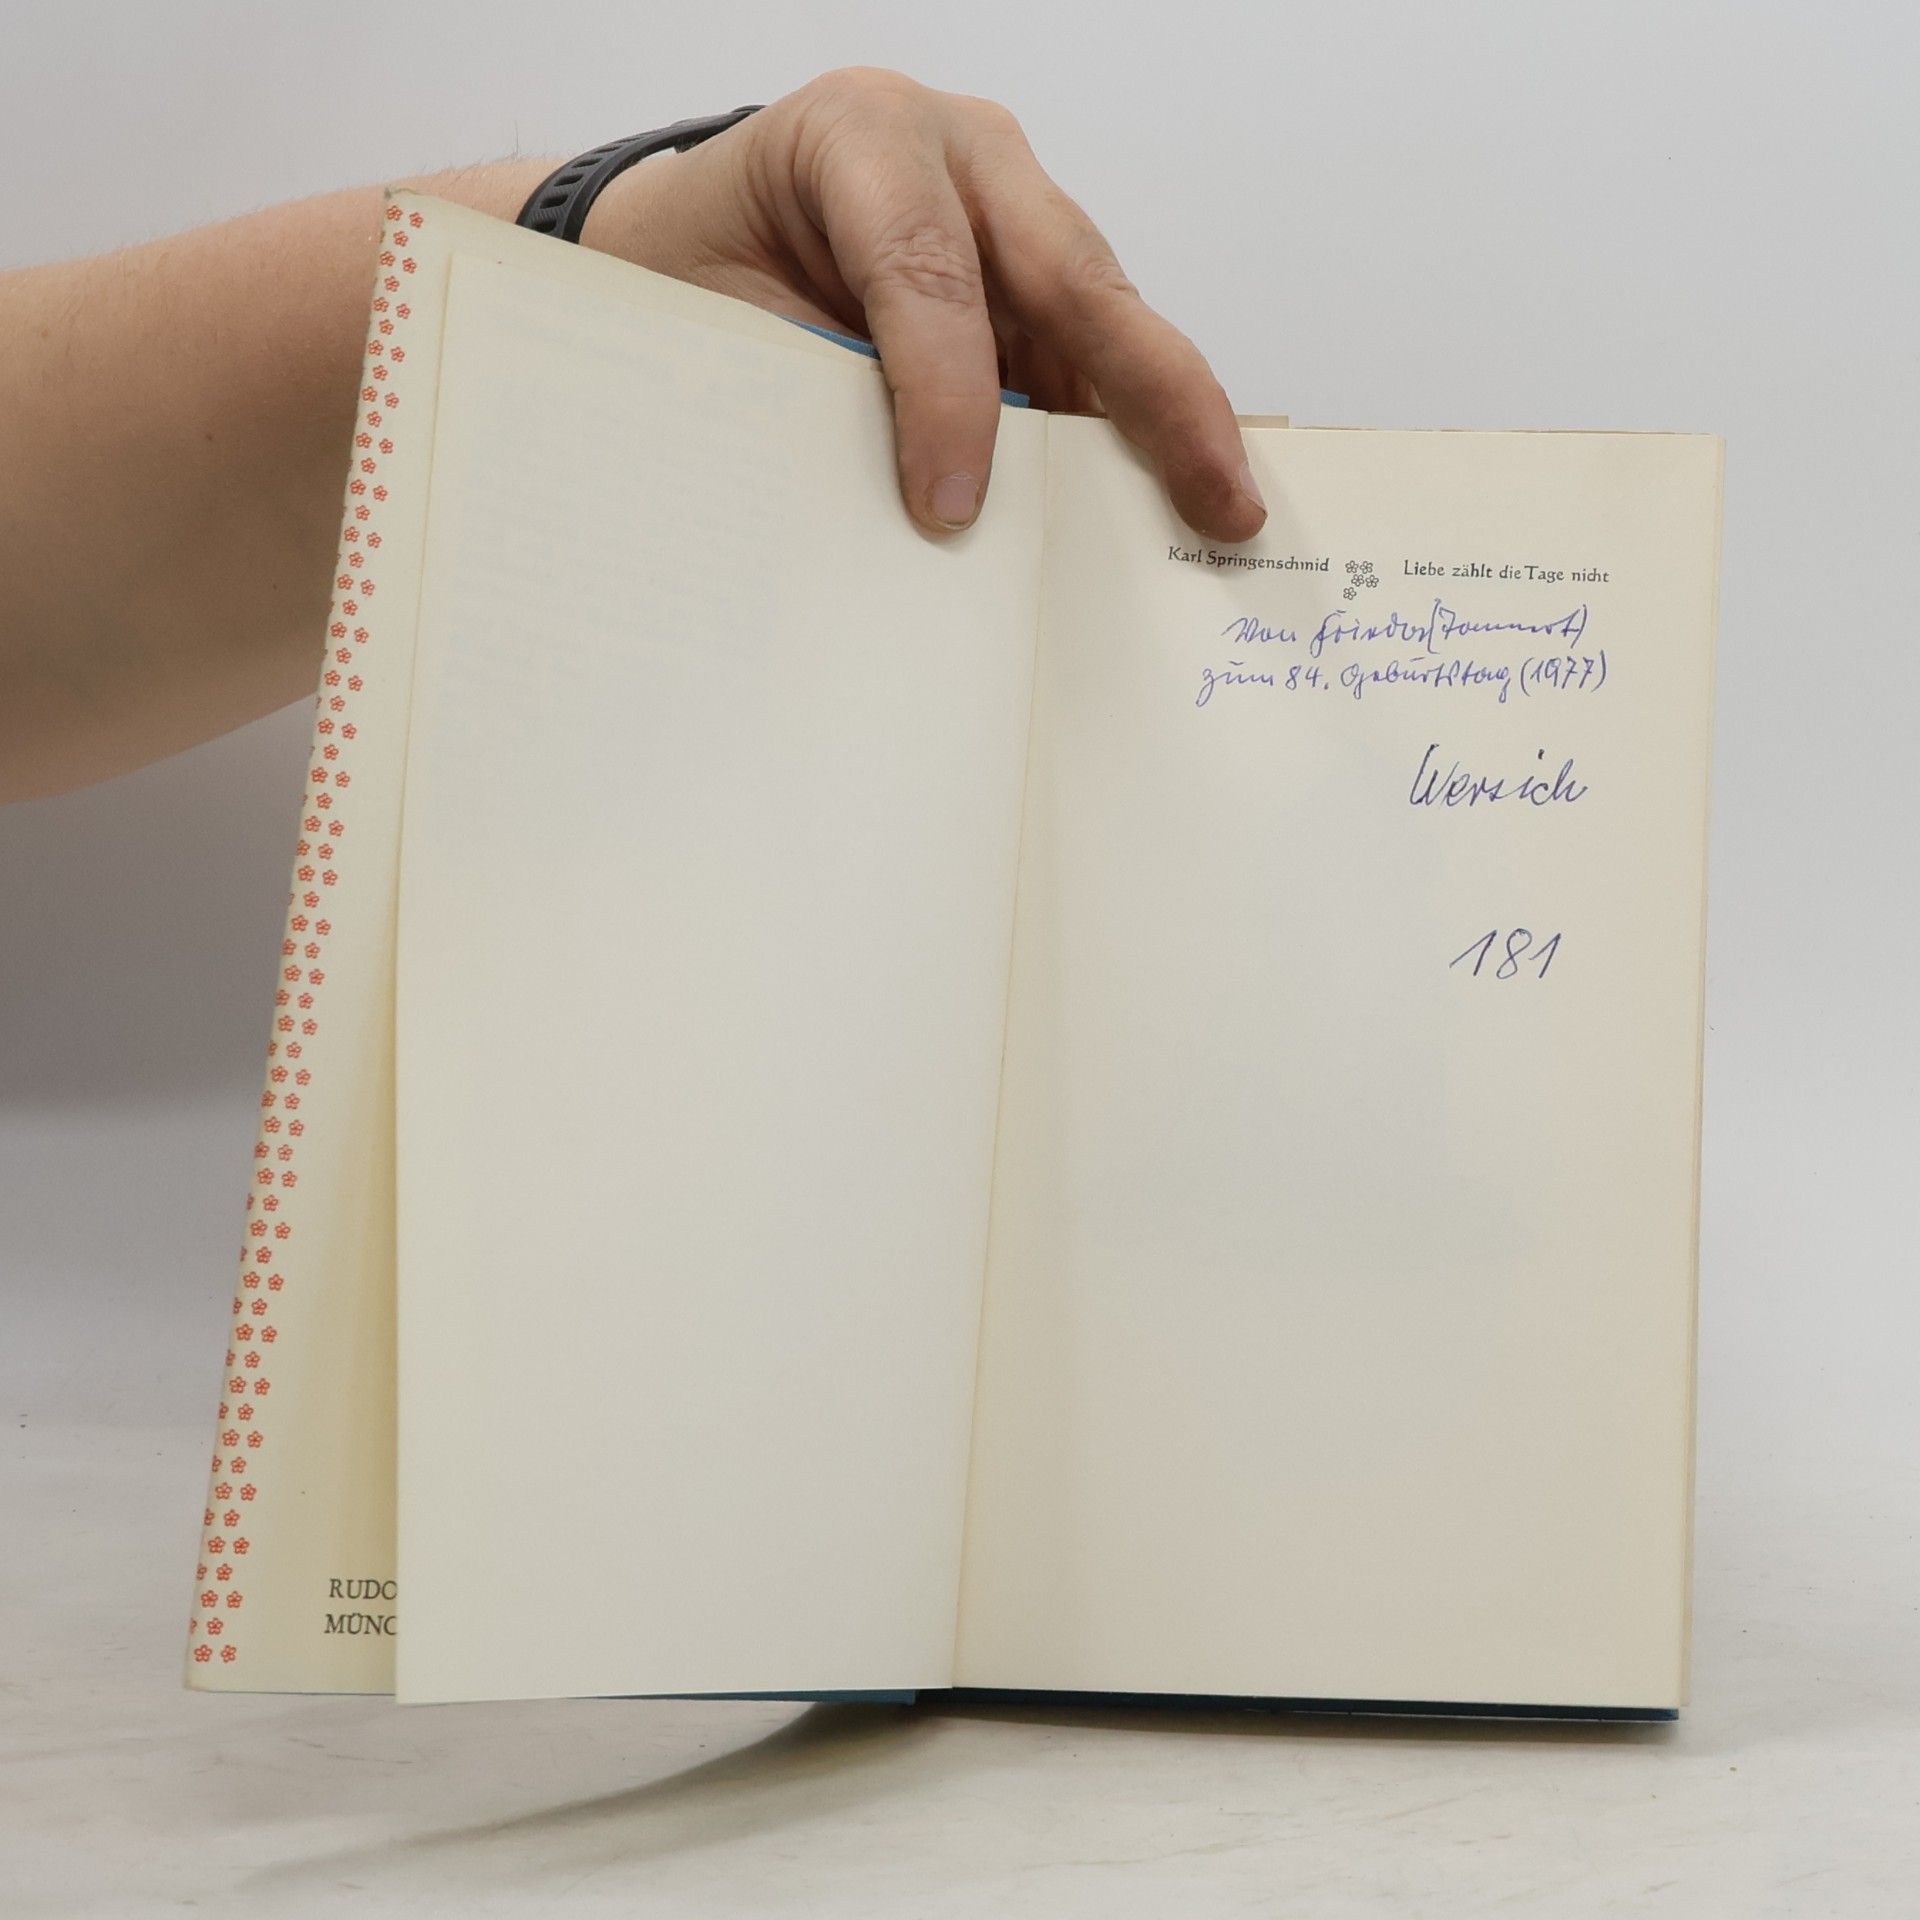 Karl Springenschmid Liebe zählt die Tage nicht
Von Frieda
zum 84. Geburtstag (1977)
Wersich
181
RUDO
MÜNC